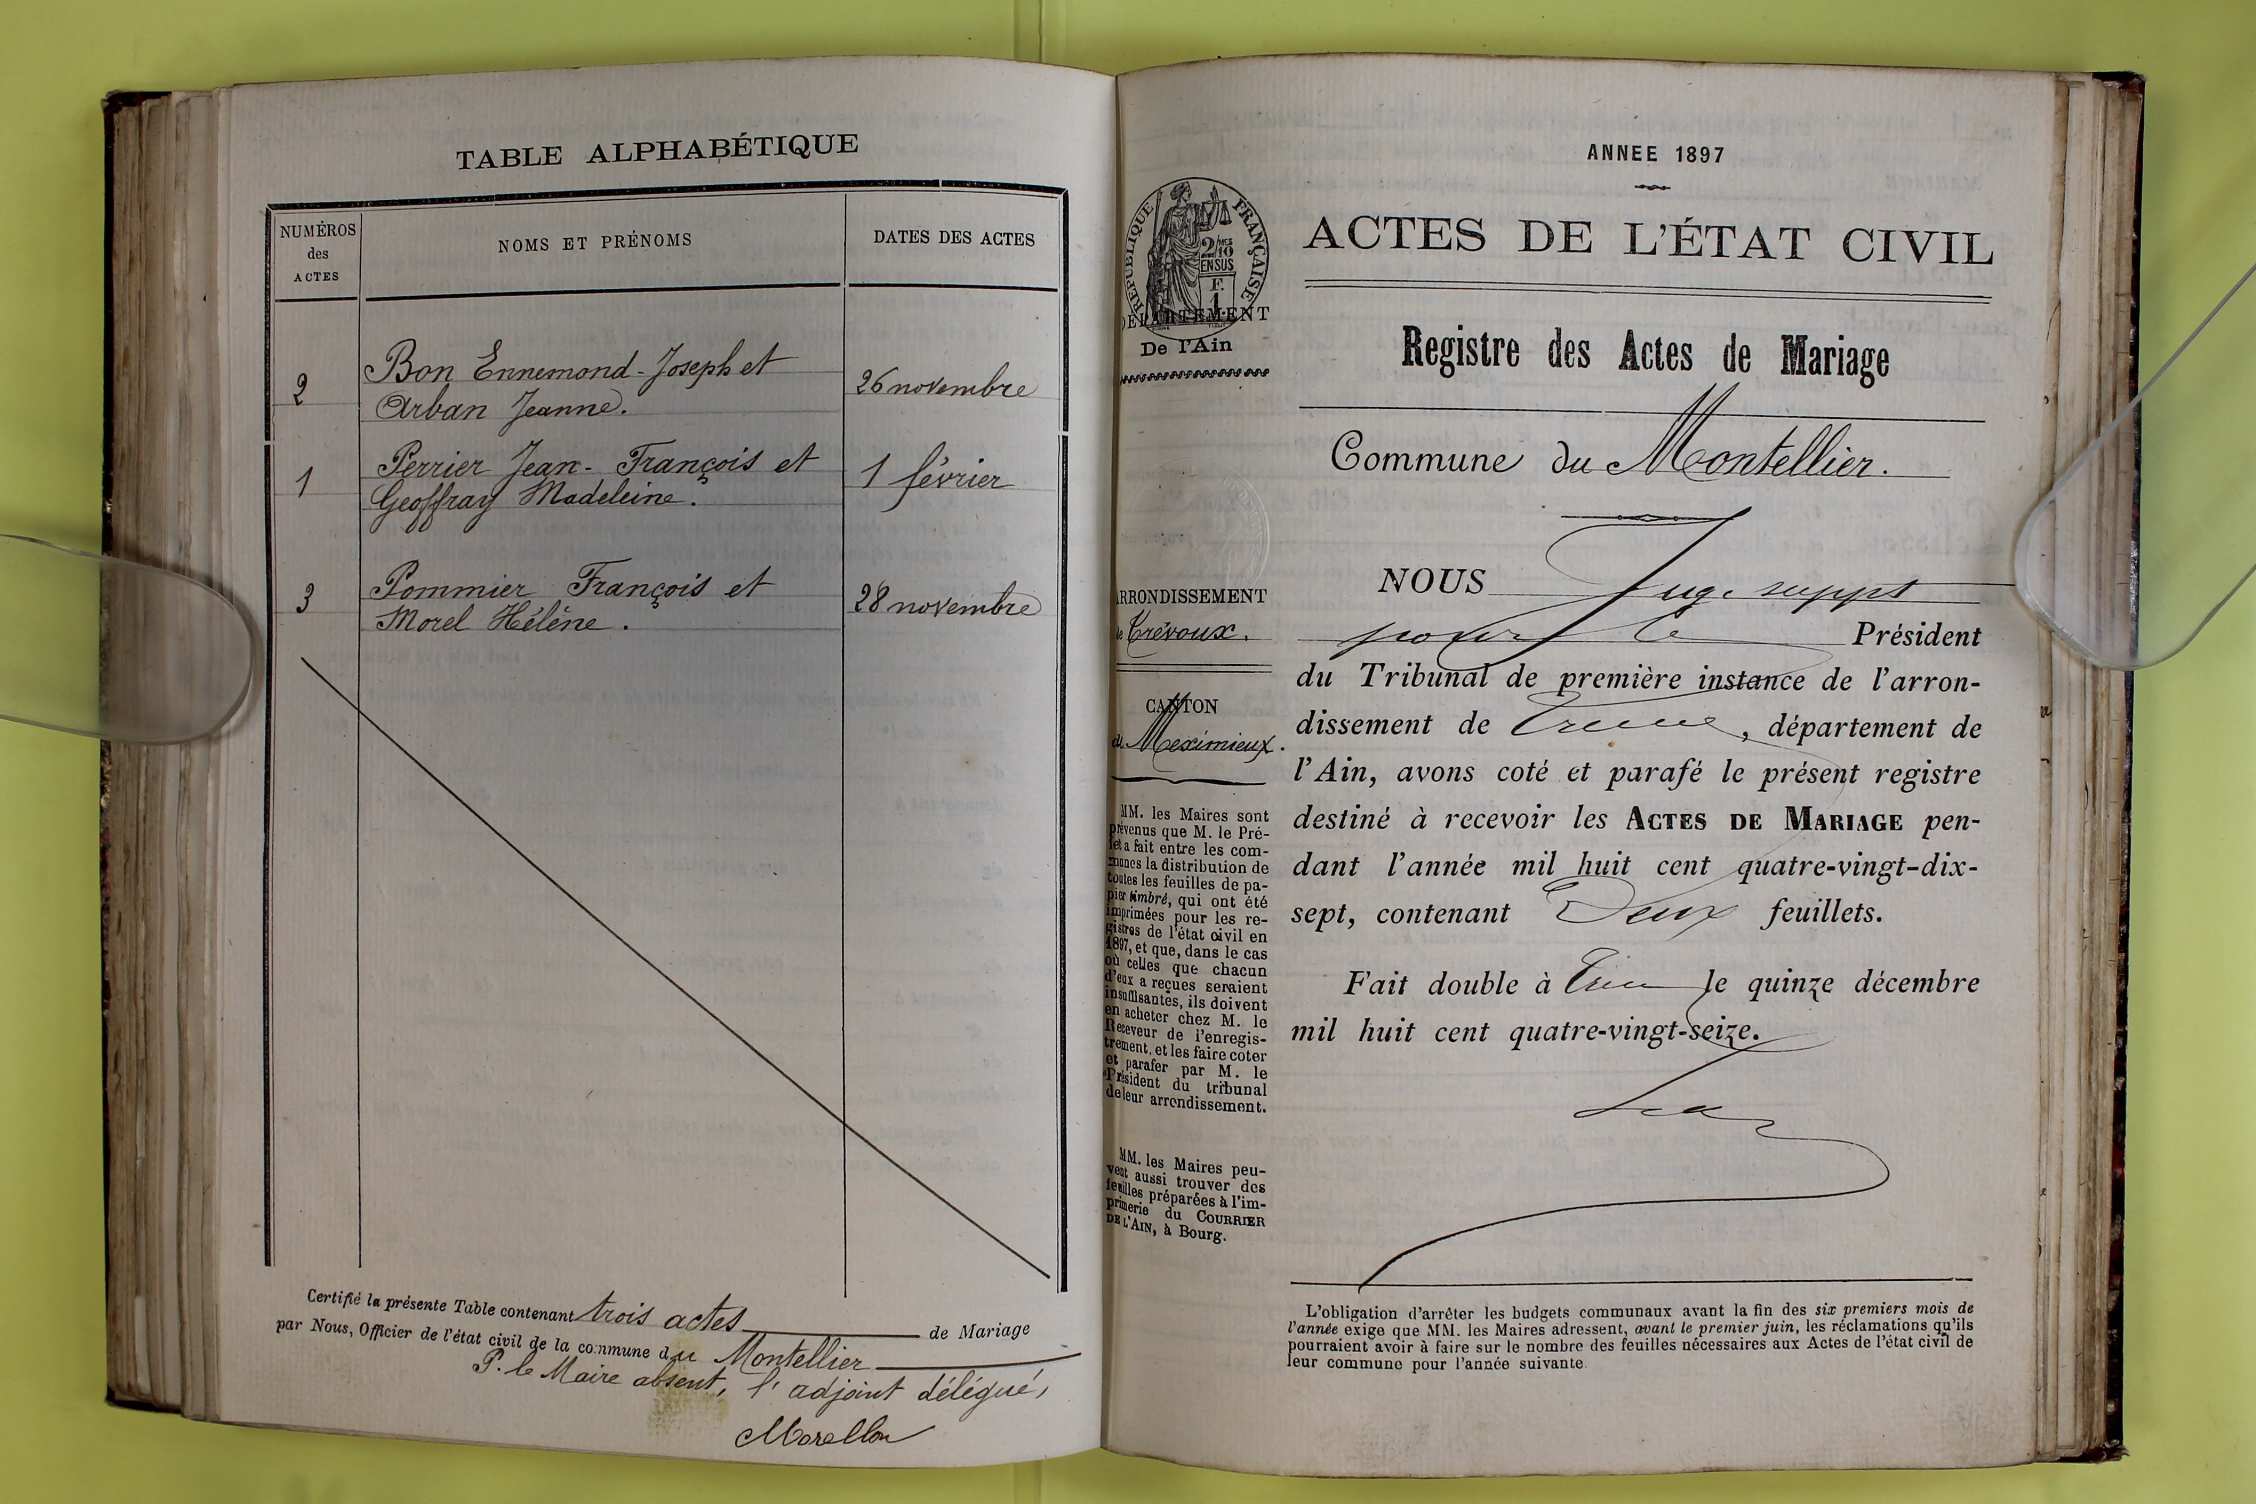 TABLE ALPHABÉTIQUE
NUMÉROS
des
ACTES
NOMS ET PRÉNOMS
DATES DES ACTES
2
Bon Ennemond-Joseph et
Arban Jeanne.
26 novembre
1
Perrier Jean-François et
Geoffray Madeleine.
1 février
3
Pommier François et
Morel Hélène.
28 novembre
Certifié la présente Table contenant trois actes de Mariage
par Nous, Officier de l'état civil de la commune du Montellier
P. le Maire absent, l'adjoint délégué,
Morellon
RÉPUBLIQUE FRANÇAISE
2/10
EN SUS
F.
1
DÉPARTEMENT
De l'Ain
ARRONDISSEMENT
de Trévoux.
CANTON
de Meximieux.
MM. les Maires sont
prévenus que M. le Pré-
fet a fait entre les com-
munes la distribution de
toutes les feuilles de pa-
pier timbré, qui ont été
imprimées pour les re-
gistres de l'état civil en
1897, et que, dans le cas
où celles que chacun
d'eux a reçues seraient
insuffisantes, ils doivent
en acheter chez M. le
Receveur de l'enregis-
trement, et les faire coter
et parafer par M. le
Président du tribunal
de leur arrondissement.
MM. les Maires peu-
vent aussi trouver des
feuilles préparées à l'im-
primerie du COURRIER
DE L'AIN, à Bourg.
ANNEE 1897
ACTES DE L'ÉTAT CIVIL
Registre des Actes de Mariage
Commune du Montellier.
NOUS Juge suppt
pour le Président
du Tribunal de première instance de l'arron-
dissement de , département de
l'Ain, avons coté et parafé le présent registre
destiné à recevoir les ACTES DE MARIAGE pen-
dant l'année mil huit cent quatre-vingt-dix-
sept, contenant Deux feuillets.
Fait double à le quinze décembre
mil huit cent quatre-vingt-seize.
L'obligation d'arrêter les budgets communaux avant la fin des six premiers mois de
l'année exige que MM. les Maires adressent, avant le premier juin, les réclamations qu'ils
pourraient avoir à faire sur le nombre des feuilles nécessaires aux Actes de l'état civil de
leur commune pour l'année suivante.